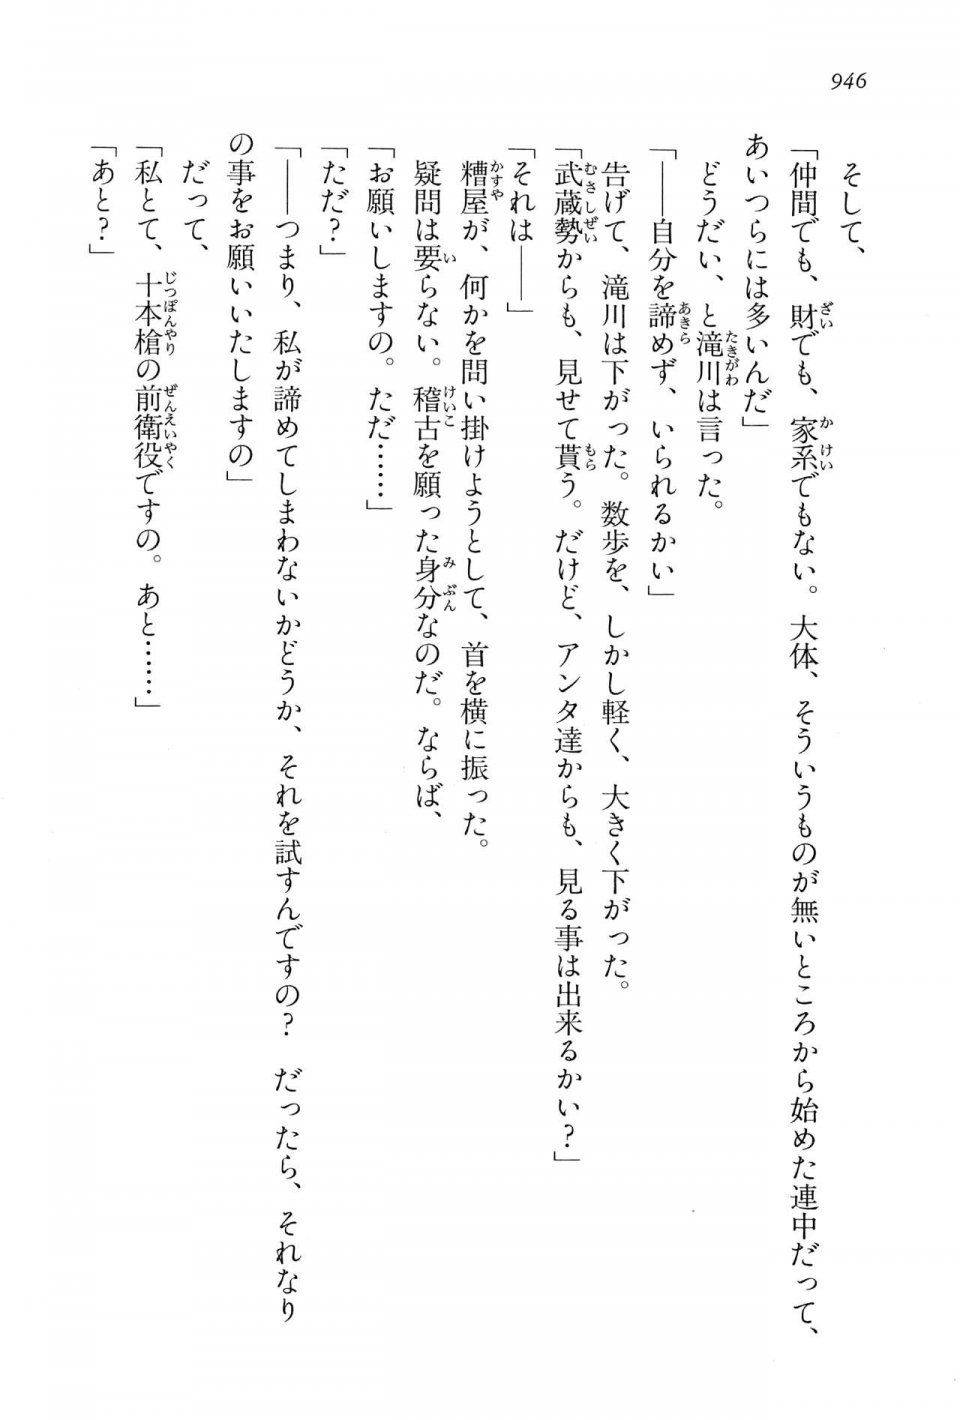 946
そして、
「仲間でも、財でも、家系でもない。大体、そういうものが無いところから始めた連中だって、
あいつらには多いんだ」
どうだい、と滝川は言った。
「――自分を諦めず、いられるかい」
告げて、滝川は下がった。数歩を、しかし軽く、大きく下がった。
「武蔵勢からも、見せて貰う。だけど、アンタ達からも、見る事は出来るかい？」
「それは――」
糟屋が、何かを問い掛けようとして、首を横に振った。
疑問は要らない。稽古を願った身分なのだ。ならば、
「お願いしますの。ただ……」
「ただ？」
「――つまり、私が諦めてしまわないかどうか、それを試すんですの？　だったら、それなり
の事をお願いいたしますの」
だって、
「私とて、十本槍の前衛役ですの。あと……」
「あと？」